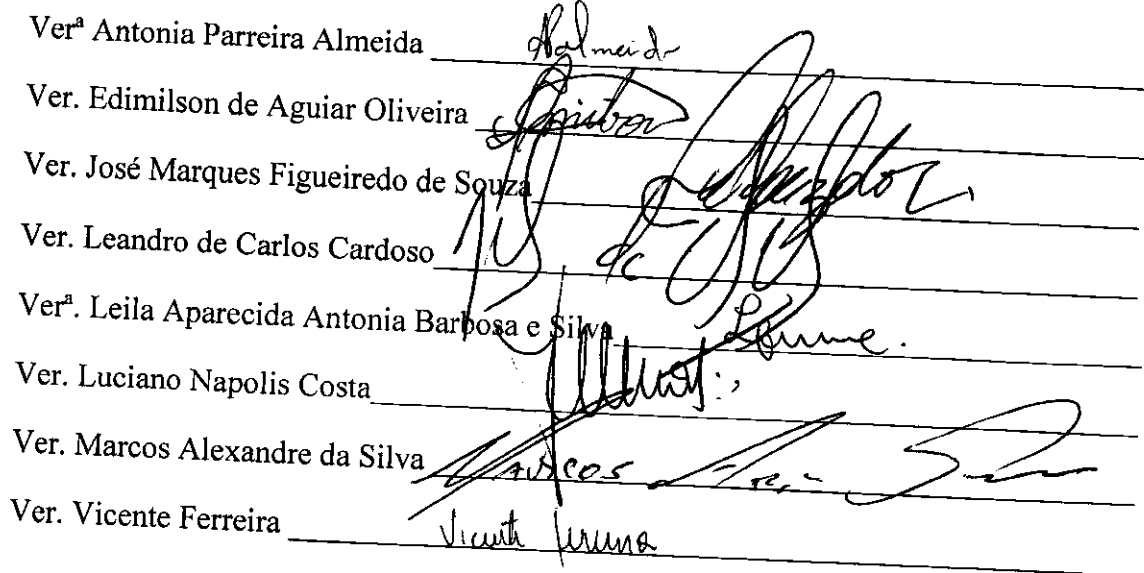 Verª Antonia Parreira Almeida Aalmeida
Ver. Edimilson de Aguiar Oliveira
Ver. José Marques Figueiredo de Souza
Ver. Leandro de Carlos Cardoso
Verª. Leila Aparecida Antonia Barbosa e Silva
Ver. Luciano Napolis Costa
Ver. Marcos Alexandre da Silva Marcos
Ver. Vicente Ferreira Vicente Ferreira